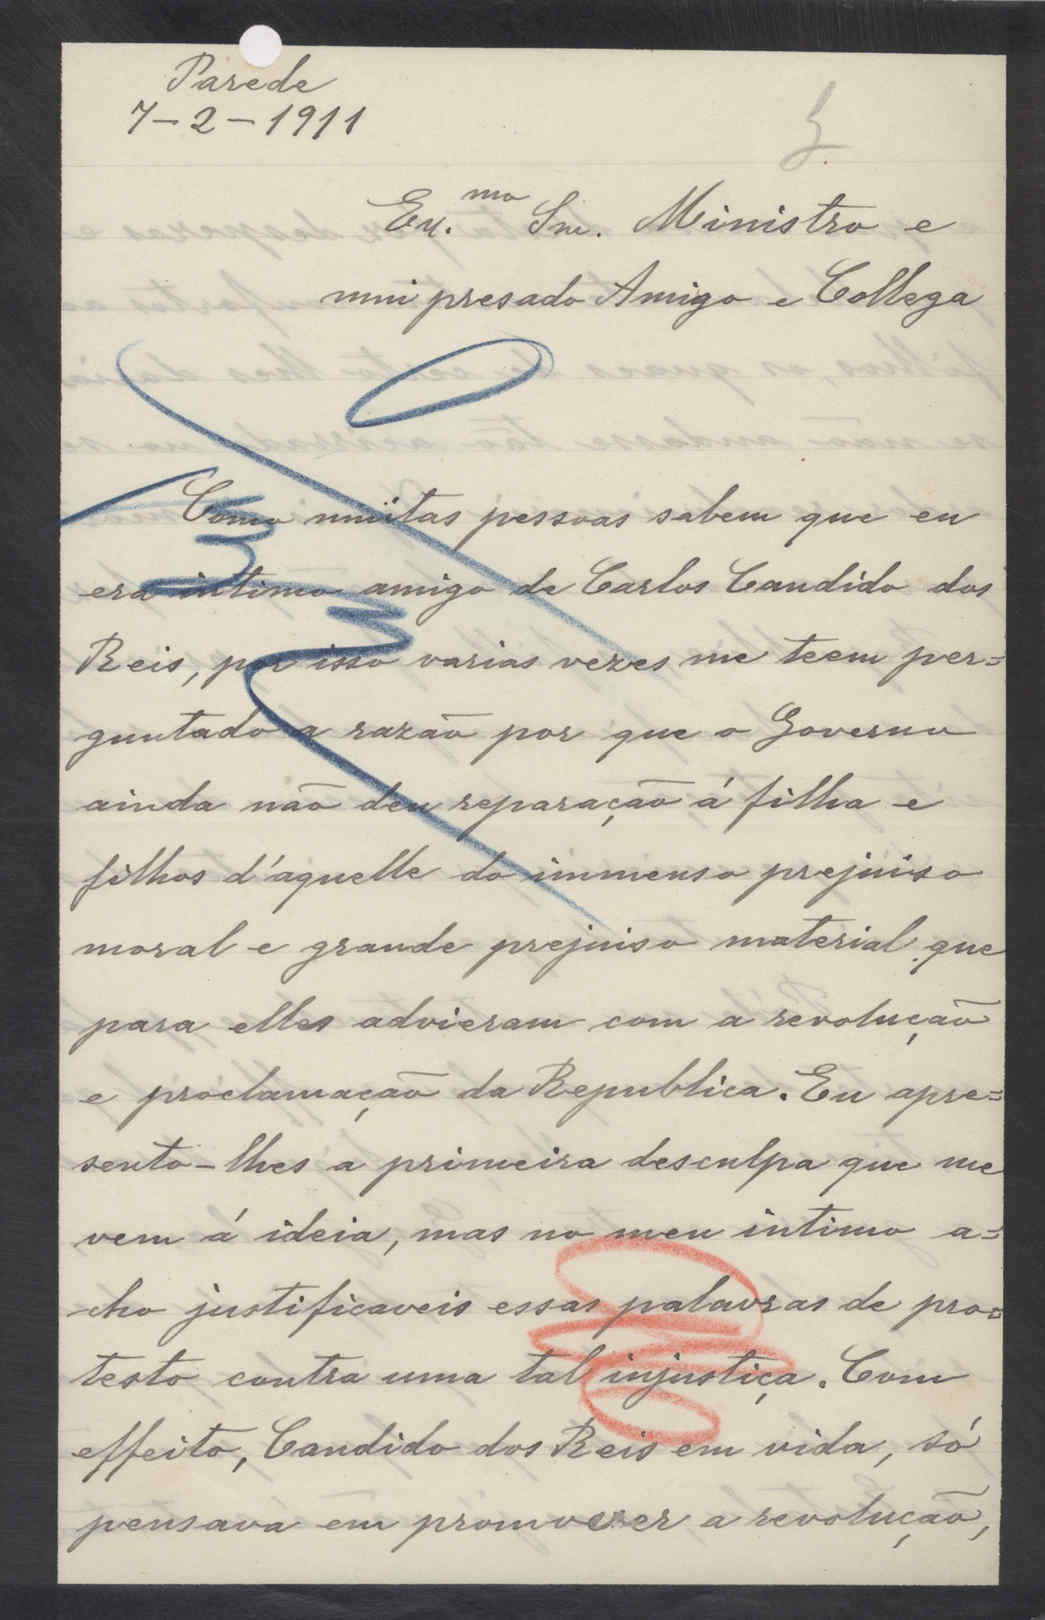 Parede
7-2-1911
Ex.mo Snr. Ministro e
mui presado Amigo e Collega
Como muitas pessoas sabem que eu
era intimo amigo de Carlos Candido dos
Reis, por isso varias vezes me teem per=
guntado a razão por que o Governo
ainda não deu reparação á filha e
filhos d'aquelle do immenso prejuiso
moral e grande prejuiso material que
para elles advieram com a revolução
e proclamação da Republica. Eu apre=
sento-lhes a primeira desculpa que me
vem á ideia, mas no meu intimo a=
cho justificaveis essas palavras de pro=
testo contra uma tal injustiça. Com
effeito, Candido dos Reis em vida, só
pensava em promover a revolução,